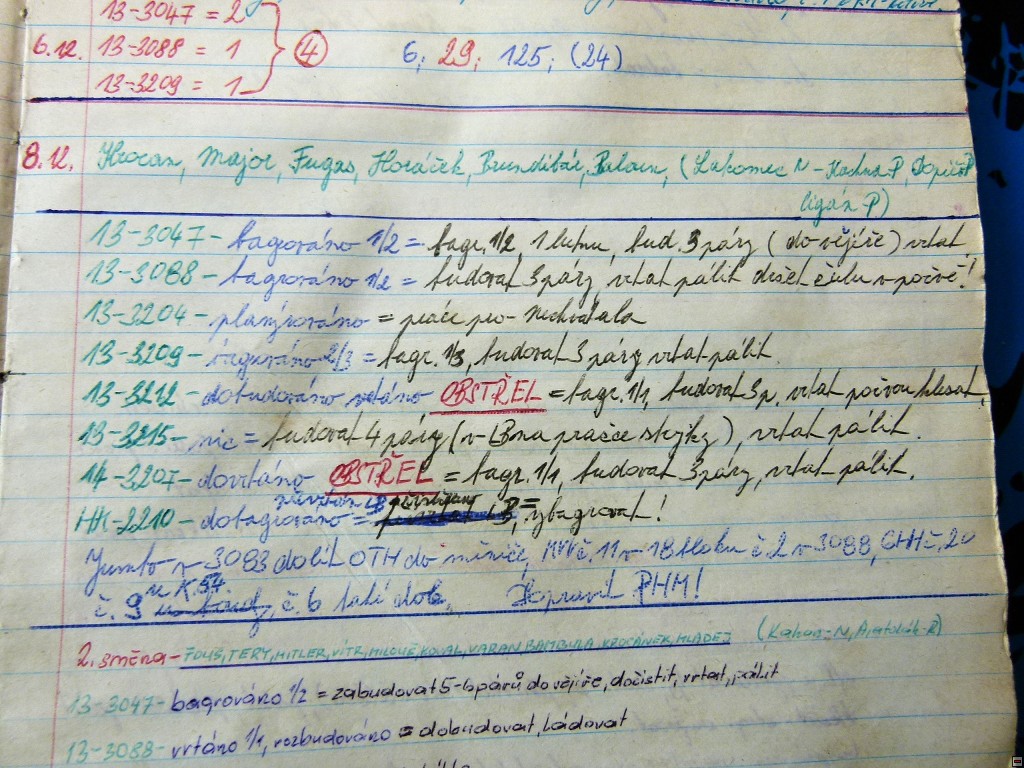 13-3047 = 2
6.12. 13-3088 = 1 } 4 6; 29; 125; (24)
13-3209 = 1
8.12. Major, Fugas, Horáček, Brundibár, (Lakomec N - P,
ligán P)
13-3047 - bagrováno 1/2 = bagr. 1/2, 1 lutnu, bud. 3 páry (do vějíře) vrtat
13-3088 - bagrováno 1/2 = budovat 3 páry vrtat pálit držet čúlu v počvě!
13-3204 - planýrováno = práce pro
13-3209 - bagrováno 2/3 = bagr. 1/3, budovat 3 páry vrtat pálit.
13-3212 - dobudováno vrtáno OBSTŘEL = bagr. 1/1, budovat 3 p. vrtat počvou klesat.
13-3215 - nic = budovat 4 páry (v LB na pračce stojky), vrtat pálit.
14-3207 - dovrtáno OBSTŘEL = bagr. 1/1, budovat 3 páry, vrtat pálit.
HK-2210 - dobagrováno = vybagrovat!
Jumbo v 3083 dolít OTH do měniče, č. 11 v 18 bloku č. 2 v 3088, GHH č. 20
u K.54.
č. 9 č. 6 také dob. Dopravit PHM!
2. směna - FOUŠ, TERY, HITLER, VÍTR, MILOUŠ, KOVAL, VARAN, BAMBULA, KROCÁNEK, MLADEJ
13-3047 - bagrováno 1/2 = zabudovat 5-6 párů do vějíře, dočistit, vrtat, pálit
13-3088 - vrtáno 1/1, rozbudováno = dobudovat, ládovat